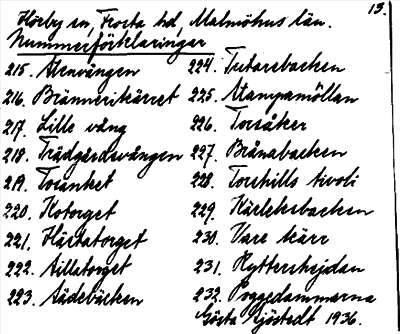 13.
Hörby sn, Frosta hd, Malmöhus län.
Nummerförklaringar
215. Stenvången
216. Brännerikärret
217. Lille vång
218. Trädgårdsvången
219. Torànket
220. Kotorget
221. Hästatorget
222. Lillatorget
223. Sädebäcken
224. Tutarebacken
225. Stampamöllan
226. Torsåker
227. Brånabacken
228. Torskills tivoli
229. Kärleksbacken
230. Vare kärr
231. Ryttershejdan
232. Poggedammarna
Gösta Sjöstedt 1936.